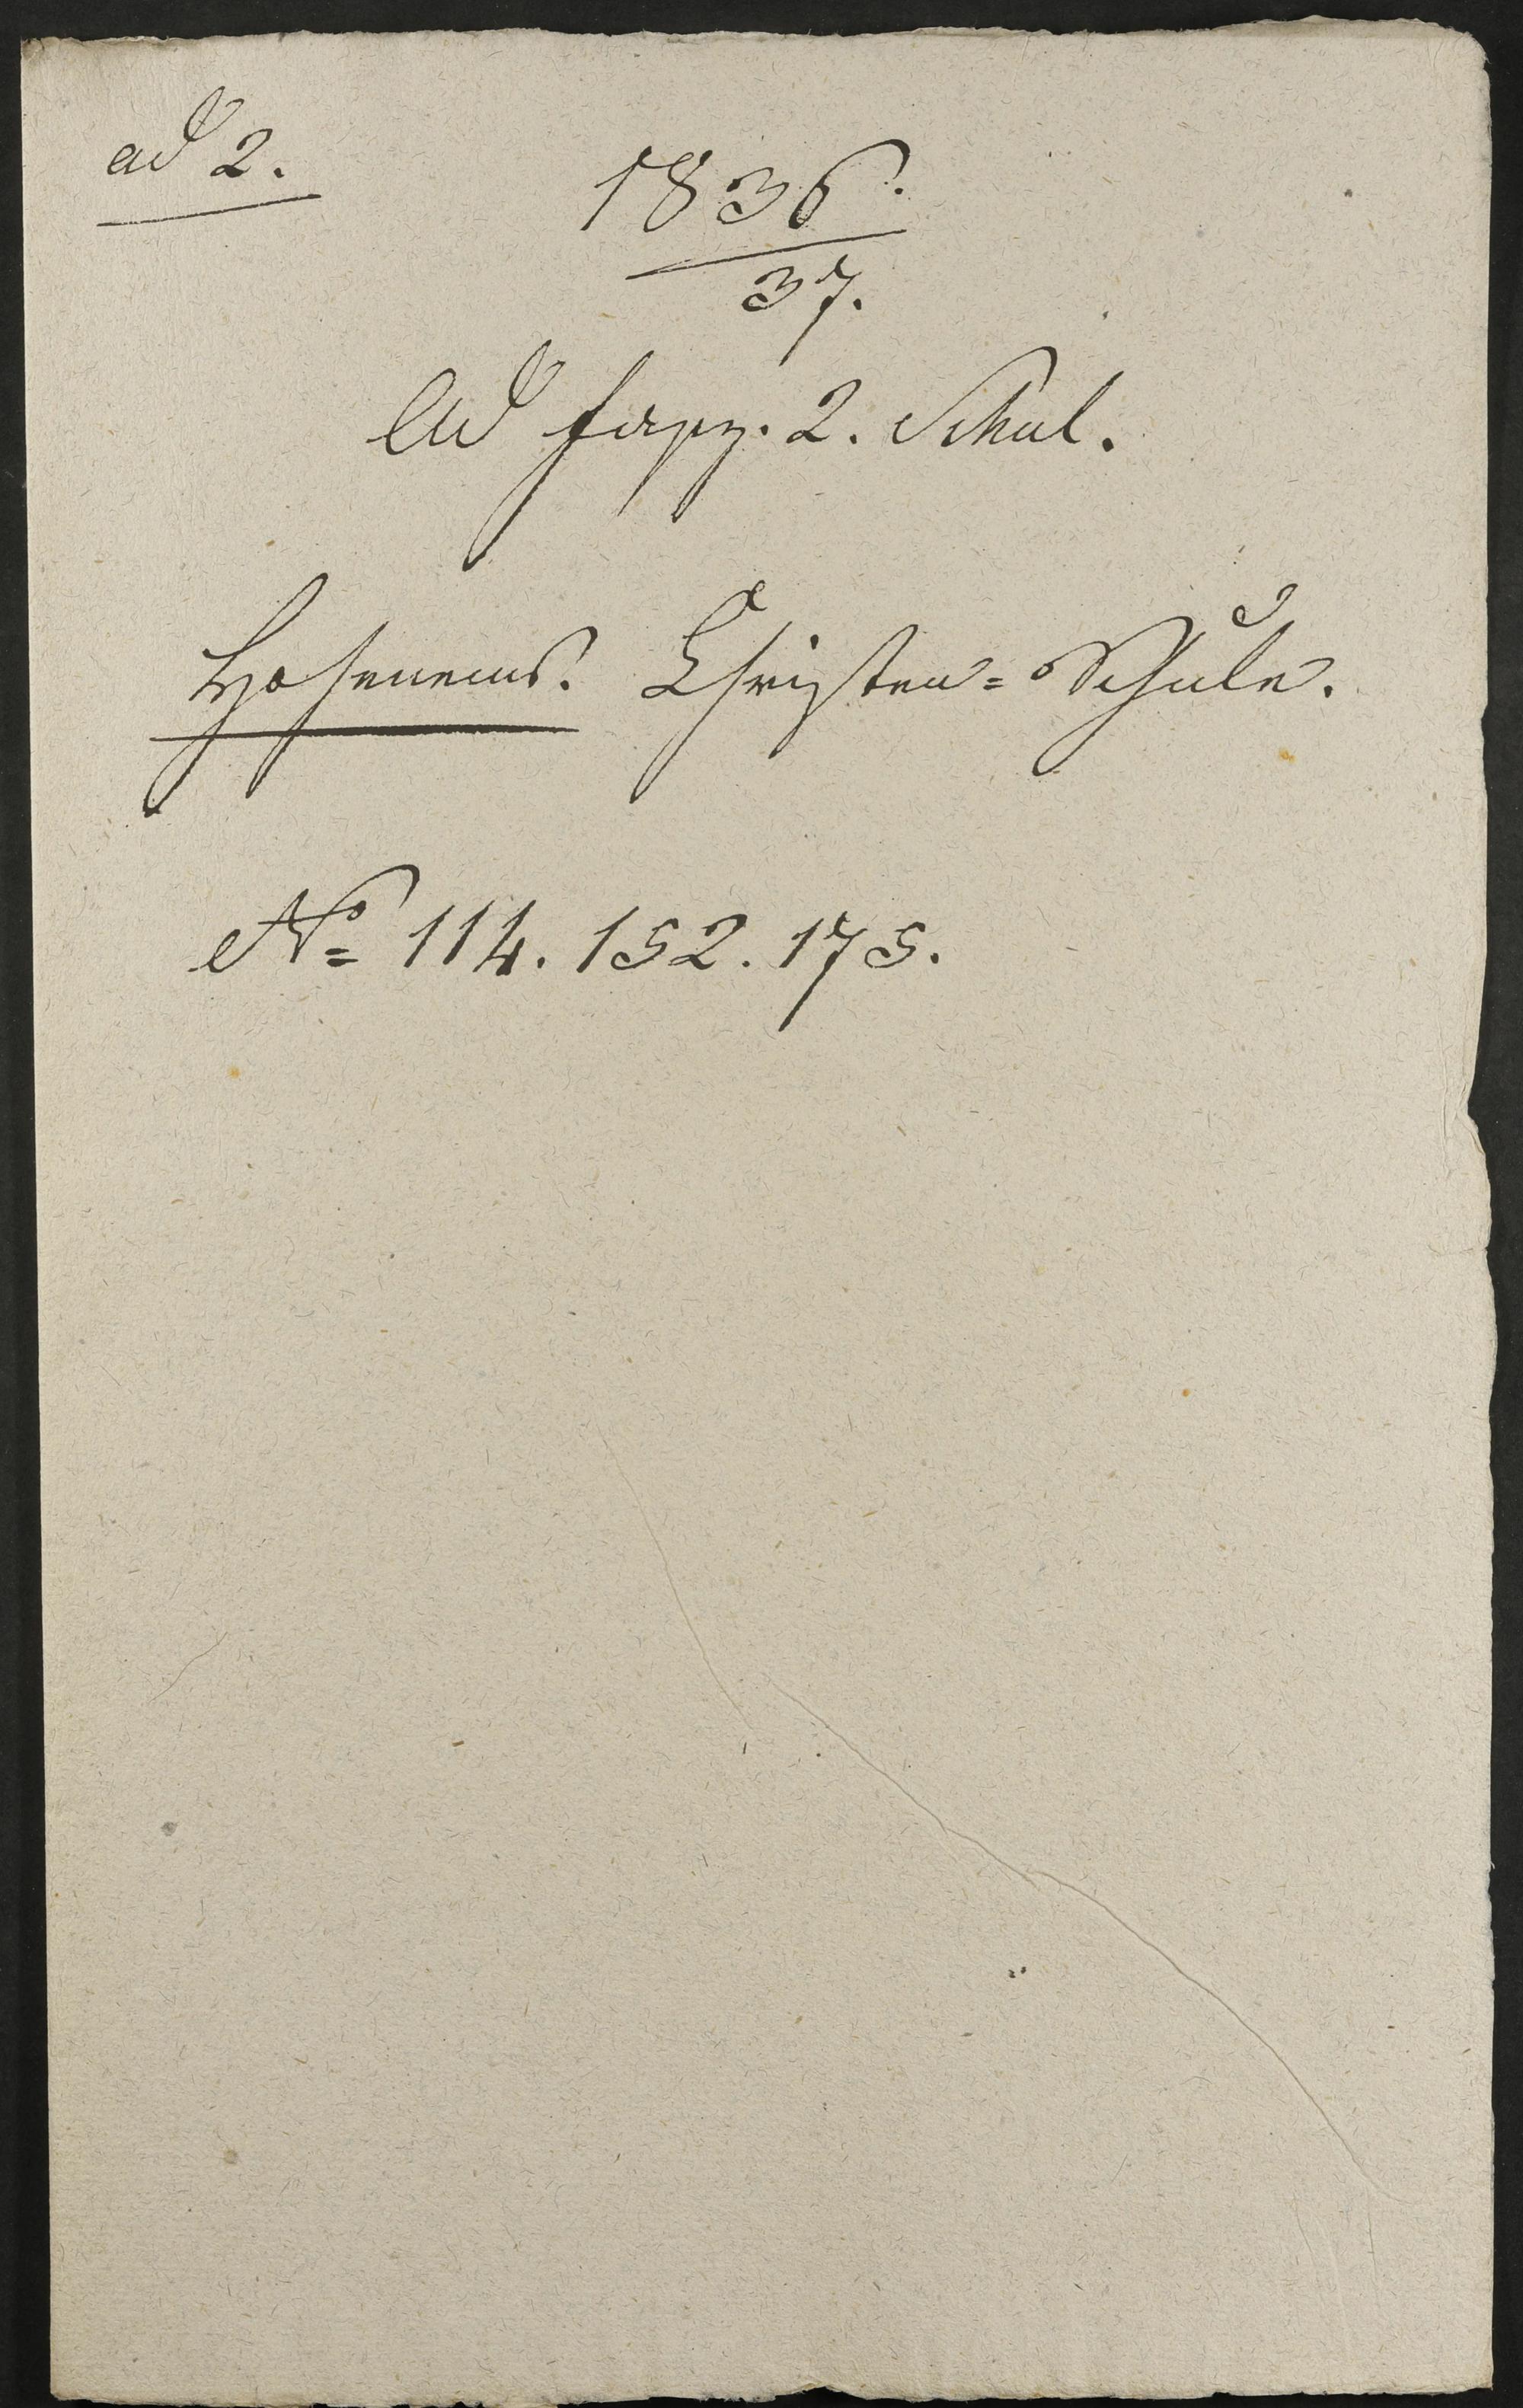 ad 2.
1836.
37.
Ad fasz. 2. Schul.
Hohenems. Christen=Schule.
No= 114. 152. 175.